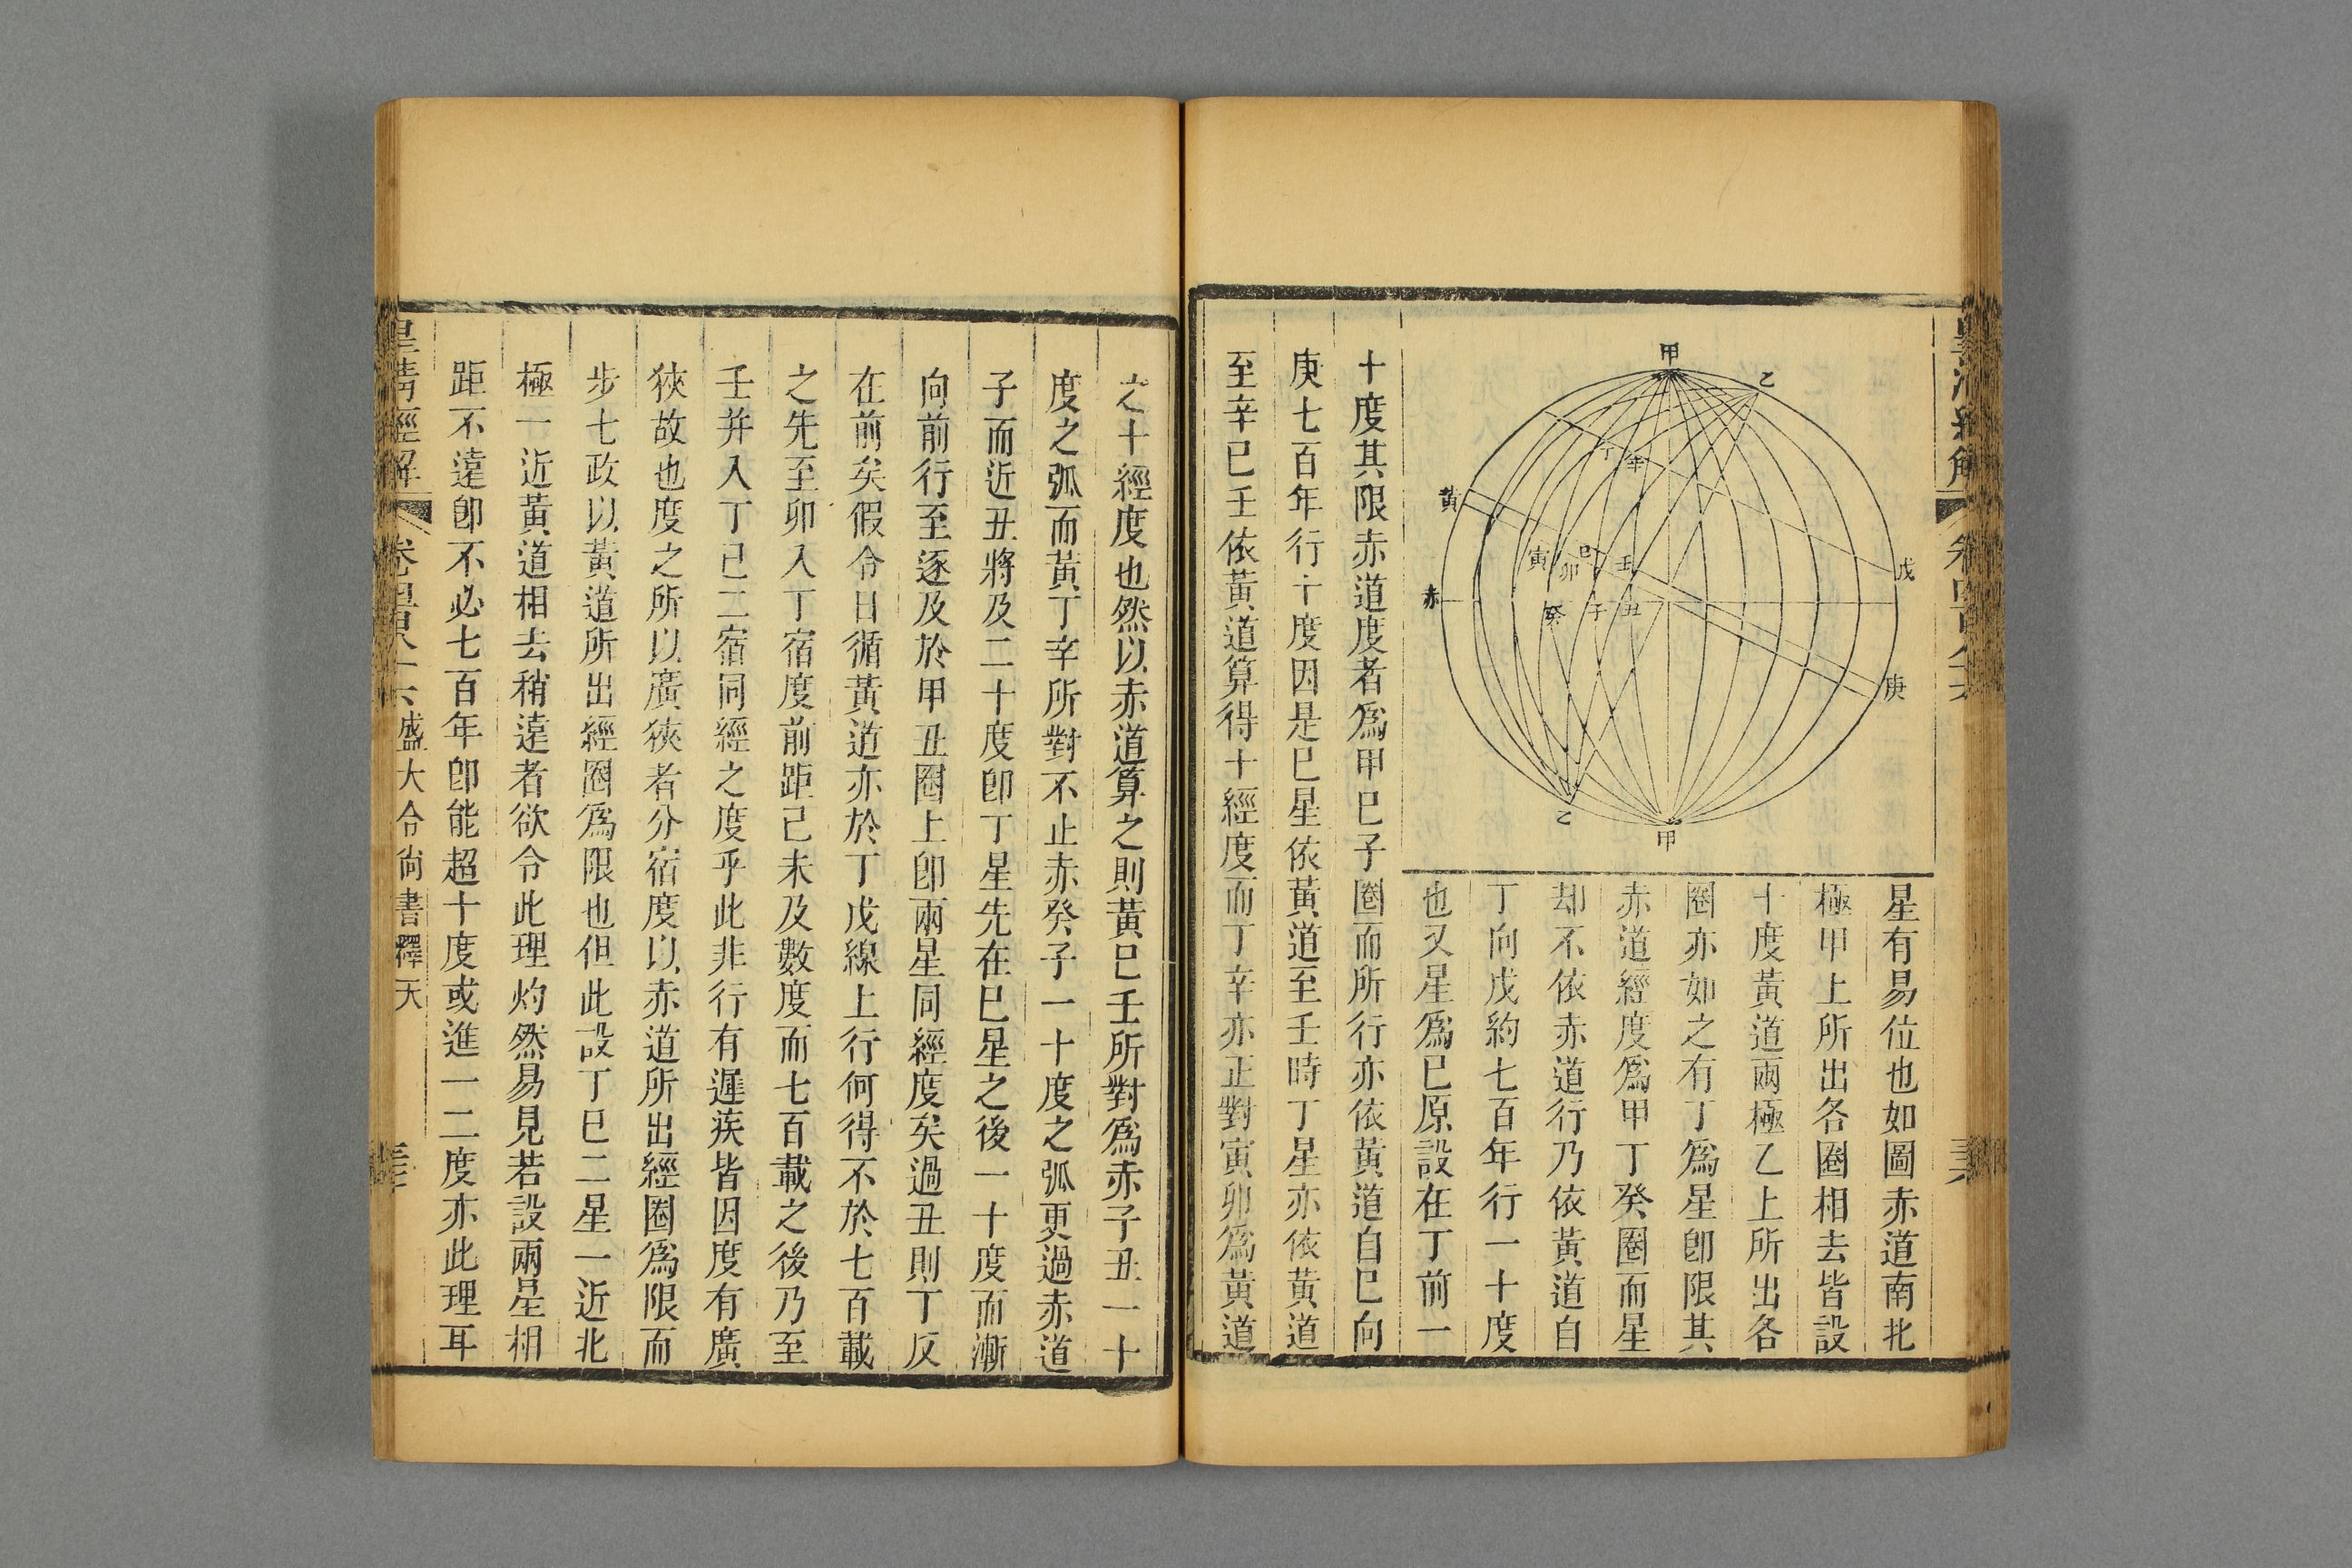 甲
乙
子
辛
黃
戊
寅
卯
巳
壬
赤
癸
子
丑
庚
乙
甲
星有易位也如圖赤道南北
極甲上所出各圈相去皆設
十度黃道兩極乙上所出各
圈亦如之有丁爲星卽限其
赤道經度爲甲丁癸圈而星
却不依赤道行乃依黃道自
丁向戊約七百年行一十度
也又星爲巳原設在丁前一
十度其限赤道度者爲甲巳子圈而所行亦依黃道自巳向
庚七百年行十度因是巳星依黃道至壬時丁星亦依黃道
至辛巳壬依黃道算得十經度而丁辛亦正對寅卯爲黃道
之十經度也然以赤道算之則黃巳壬所對爲赤子丑一十
度之弧而黃丁辛所對不止赤癸子一十度之弧更過赤道
子而近丑將及二十度卽丁星先在巳星之後一十度而漸
向前行至逐及於甲丑圈上卽兩星同經度矣過丑則丁反
在前矣假令日循黃道亦於丁戊線上行何得不於七百載
之先至卯入丁宿度前距己未及數度而七百載之後乃至
壬并入丁己二宿同經之度乎此非行有遲疾皆因度有廣
狹故也度之所以廣狹者分宿度以赤道所出經圈爲限而
步七政以黃道所出經圈爲限也但此設丁巳二星一近北
極一近黃道相去稍遠者欲令此理灼然易見若設兩星相
距不遠卽不必七百年卽能超十度或進一二度亦此理耳
皇淸經解
盛大令尚書釋天